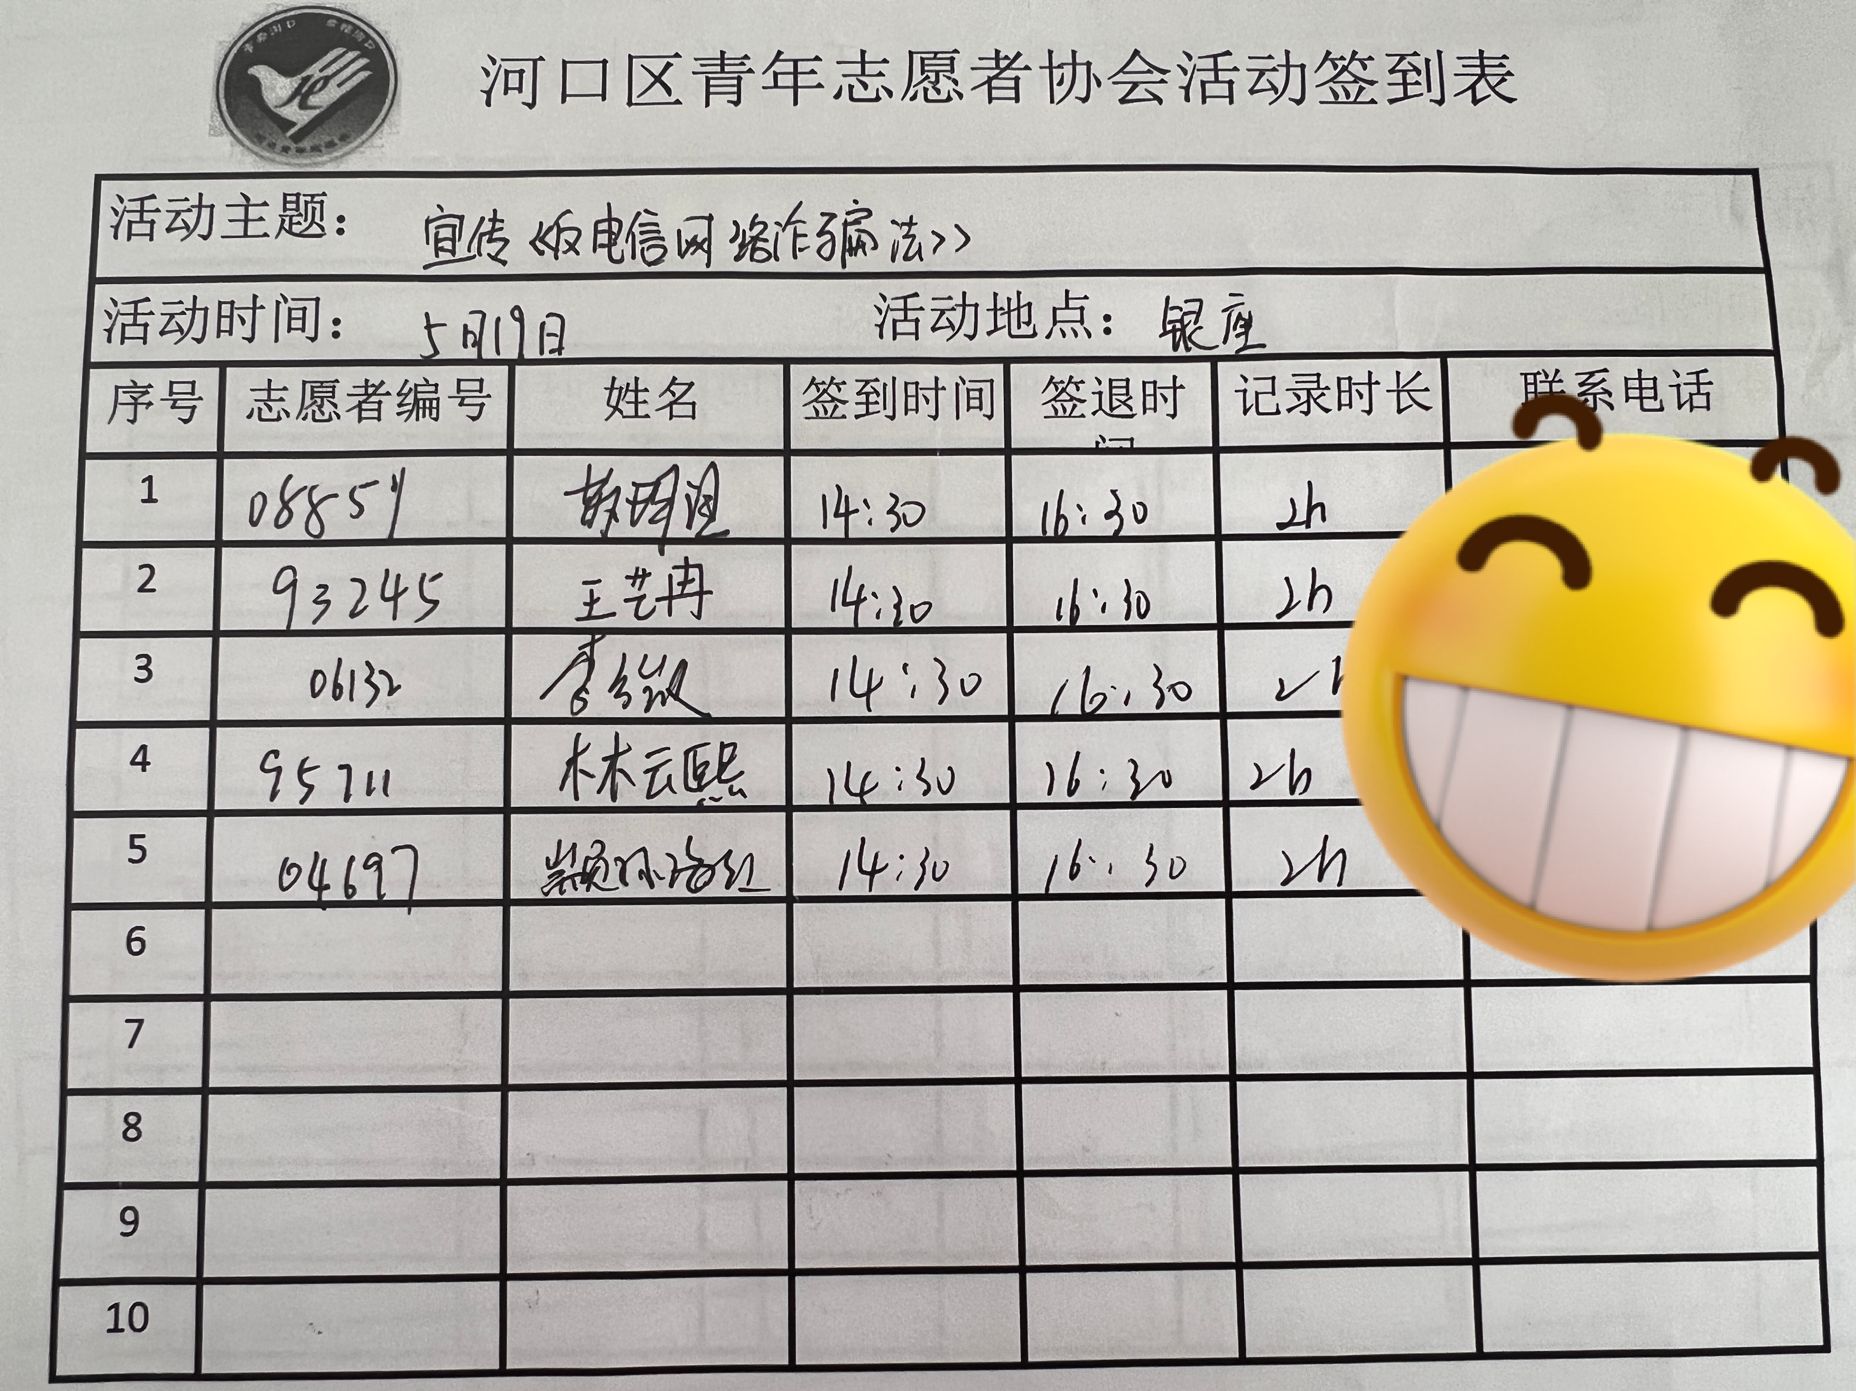 河口区青年志愿者协会活动签到表
活动主题： 宣传《反电信网络诈骗法》
活动时间： 5月19日 活动地点： 银座
序号 志愿者编号 姓名 签到时间 签退时间 记录时长 联系电话
1 14:30 16:30 2h
2 93245 王艺冉 14:30 16:30 2h
3 06132 李 14:30 16:30 2h
4 95711 林云熙 14:30 16:30 2h
5 04697 14:30 16:30 2h
6
7
8
9
10